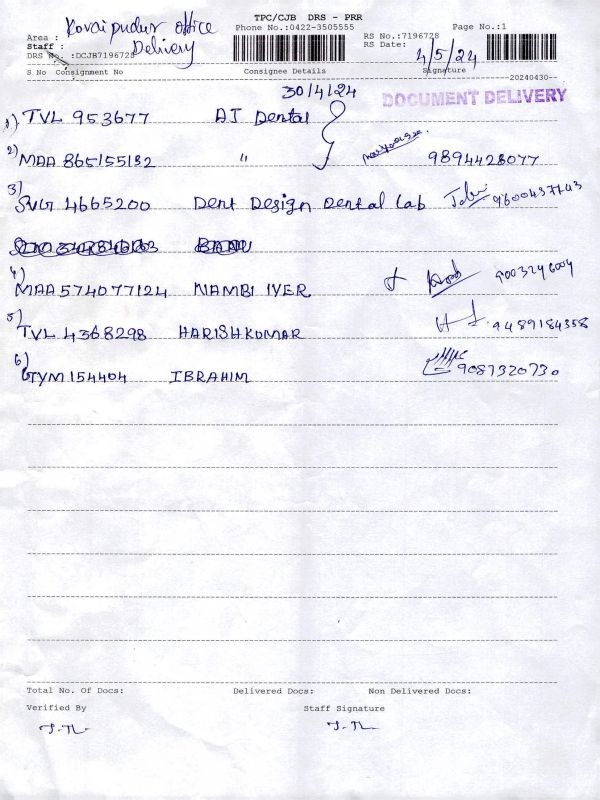 TPC/CJB DRS - PRR
Area : Kovaipudur office Delivery
Phone No.:0422-3505555
RS No.:7196728
Page No.:1
Staff :
RS Date: 4/5/24
DRS No :DCJB7196728
S No Consignment No Consignee Details Signature
20240430--
30/4/24
DOCUMENT DELIVERY
1) TVL 953677 AI Dental
2) MAA 865155182 " 9894428077
3) SVG 4665200 Dent Design Dental Lab 9600437743
4) MAA 574077124 NAMBI IYER 9003246004
5) TVL 4368298 HARISHKUMAR 9489184358
6) GYM 154404 IBRAHIM 9087320730
Total No. Of Docs: Delivered Docs: Non Delivered Docs:
Verified By Staff Signature